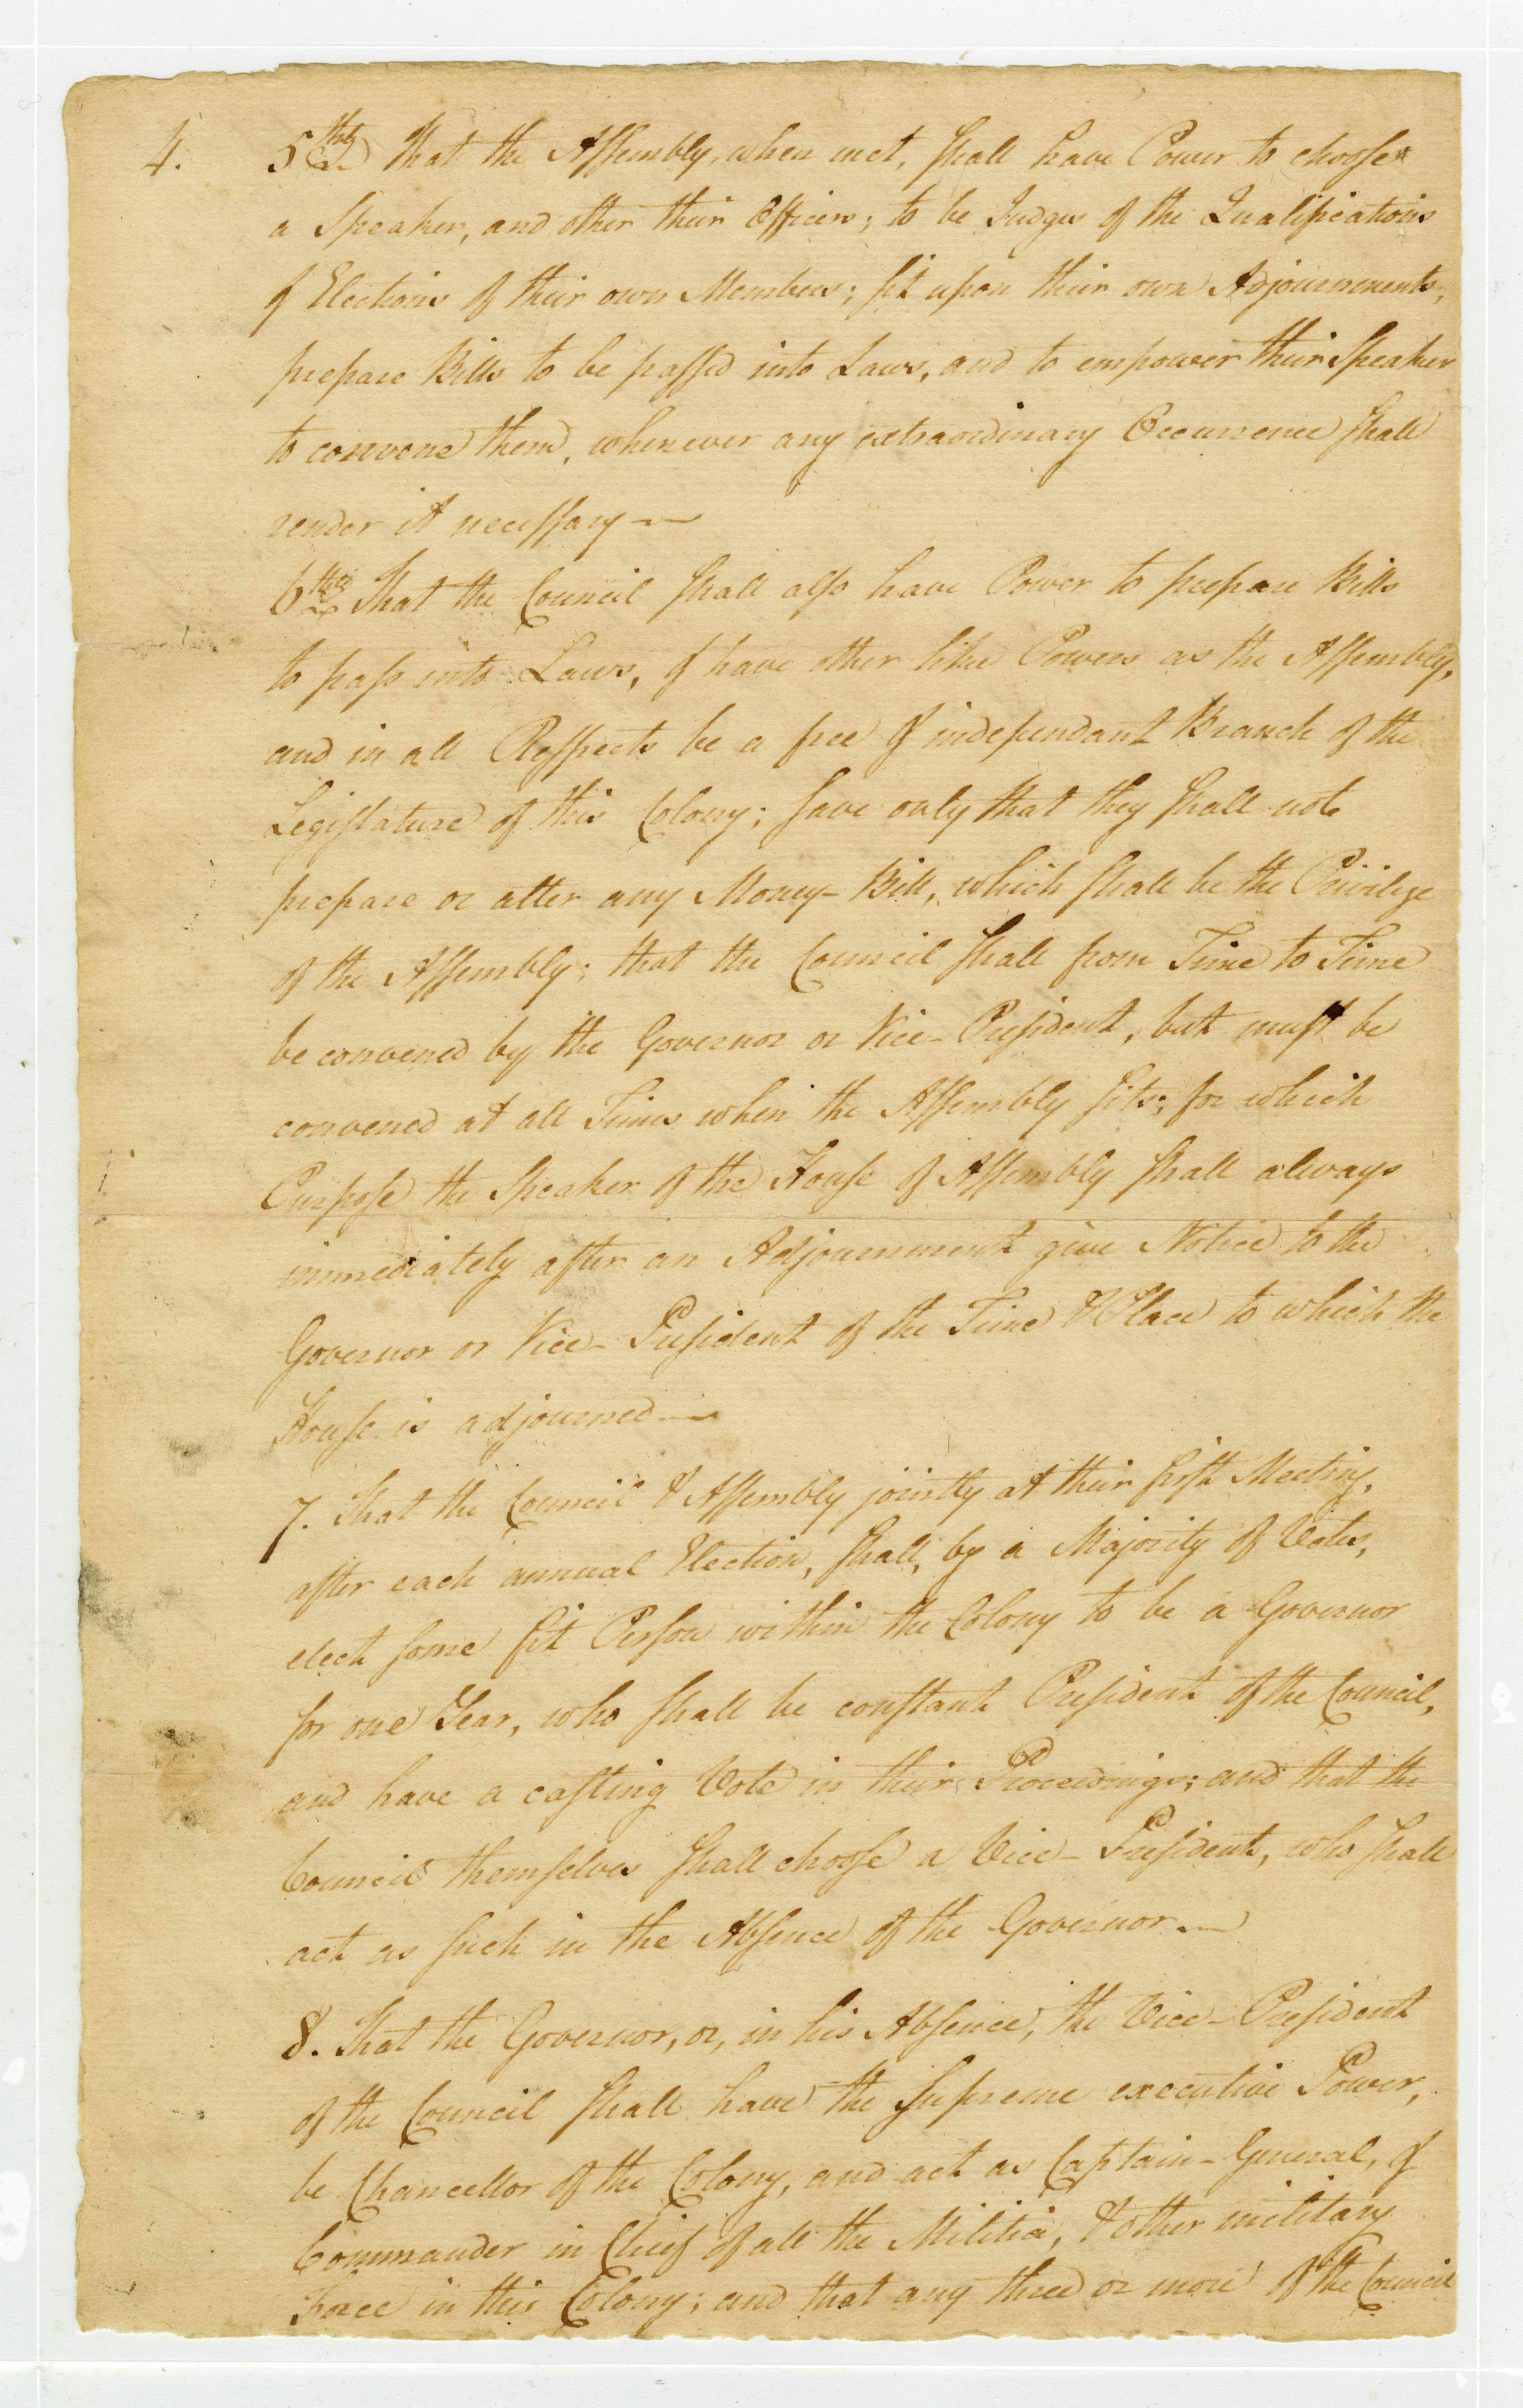 4.
5thly That the Assembly, when met, shall have Power to choose
a Speaker, and other their Officers; to be Judges of the Qualifications
& Elections of their own Members; sit upon their own Adjournments,
prepare Bills to be passed into Laws, and to empower their Speaker
to convene them, whenever any extraordinary Occurrence shall
render it necessary —
6thly That the Council shall also have Power to prepare Bills
to pass into Laws, & have other like Powers as the Assembly,
and in all Respects be a free & independant Branch of the
Legislature of this Colony; save only that they shall not
prepare or alter any Money-Bill, which shall be the Privilege
of the Assembly; that the Council shall from Time to Time
be convened by the Governor or Vice-President, but must be
convened at all Times when the Assembly sits; for which
Purpose the Speaker of the House of Assembly shall always
immediately after an Adjournment give Notice to the
Governor or Vice-President of the Time & Place to which the
House is adjourned —
7. That the Council & Assembly jointly at their first Meeting,
after each annual Election, shall, by a Majority of Votes,
elect some fit Person within the Colony to be a Governor
for one Year, who shall be constant President of the Council,
and have a casting Vote in their Proceedings; and that the
Council themselves shall choose a Vice-President, who shall
act as such in the Absence of the Governor —
8. That the Governor, or, in his Absence, the Vice-President
of the Council shall have the supreme executive Power,
be Chancellor of the Colony, and act as Captain-General, &
Commander in Chief of all the Militia, & other military
Force in this Colony; and that any three or more of the Council